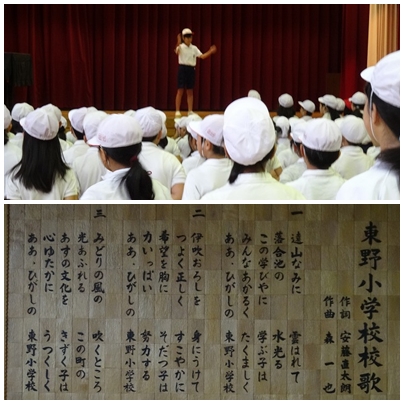 東野小学校校歌
作詞 安藤直太朗
作曲 森一也
一 遠山なみに 雲はれて
落合池の 水光る
この学びやに 学ぶ子は
みんなあかるく たくましく
ああ・ひがしの 東野小学校
二 伊吹おろしを 身にうけて
つよく正しく すこやかに
希望を胸に そだつ子は
力いっぱい 努力する
ああ・ひがしの 東野小学校
三 みどりの風の 吹くところ
光あふれる この町の
あすの文化を きずく子は
心ゆたかに うつくしく
ああ・ひがしの 東野小学校